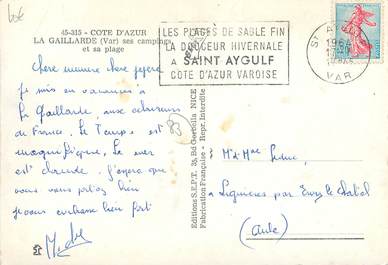 65€
45-315 - COTE D'AZUR
LA GAILLARDE (Var) ses campings
et sa plage
LES PLAGES DE SABLE FIN
LA DOUCEUR HIVERNALE
A SAINT AYGULF
COTE D'AZUR VAROISE
VAR
chère mémère chère pépère
je suis en vacances à
la Gaillarde, aux éclaireurs
de France. Le Temps est
magnifique, la mer
est chaude. j'espère que
vous vous portez bien
je vous embrasse bien fort
Michel
83
Editions S.E.P.T. 35, Bd Gorbella NICE
Fabrication Française - Repr. Interdite
Mr et Mme
Lignières par Ervy le Chatel
(Aube)